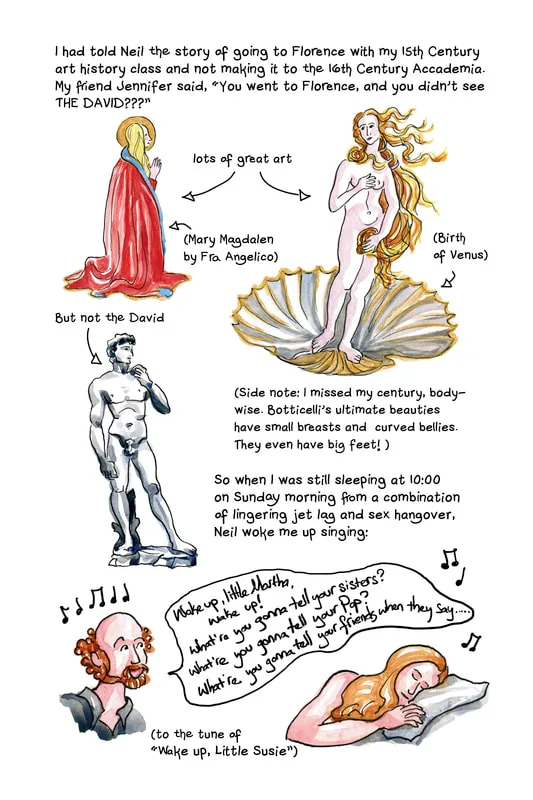 I had told Neil the story of going to Florence with my 15th Century
art history class and not making it to the 16th Century Accademia.
My friend Jennifer said, "You went to Florence, and you didn't see
THE DAVID???"
lots of great art
(Mary Magdalen
by Fra Angelico)
(Birth
of Venus)
But not the David
(Side note: I missed my century, body-
wise. Botticelli's ultimate beauties
have small breasts and curved bellies.
They even have big feet! )
So when I was still sleeping at 10:00
on Sunday morning from a combination
of lingering jet lag and sex hangover,
Neil woke me up singing:
Wake up, little Martha,
wake up!
What're you gonna tell your sisters?
What're you gonna tell your Pop?
What're you gonna tell your friends when they say.....
(to the tune of
"Wake up, Little Susie")